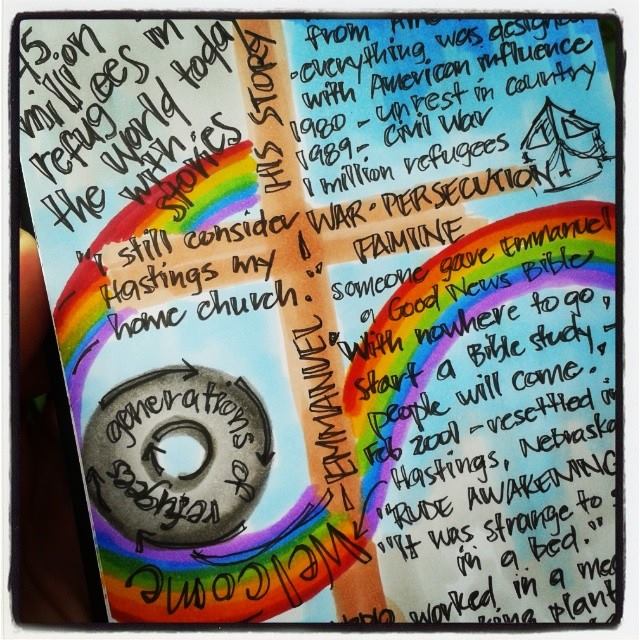 45.
million
refugees in
the world today
with
stories
HIS STORY
everything was designed
with American influence
1980 - unrest in country
1989 - Civil War
1 million refugees
WAR · PERSECUTION
FAMINE
"I still consider
Hastings my
home church."
- EMMANUEL!
someone gave Emmanuel
a Good News Bible
"With nowhere to go,
start a Bible study -
people will come."
Feb 2001 - resettled in
Hastings, Nebraska
"RUDE AWAKENING
"It was strange to
in a bed."
worked in a
plant
generations of
refugees
Welcome